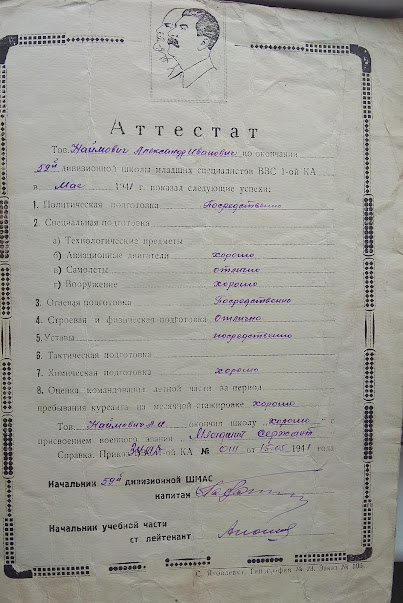 Аттестат
Тов. Наймович Александр Иванович, по окончании
59й дивизионной школы младших специалистов ВВС 1-ой КА
в Мае 1941 г. показал следующие успехи:
1. Политическая подготовка Посредственно
2. Специальная подготовка
а) Технологические предметы
б) Авиационные двигатели хорошо
в) Самолеты отлично
г) Вооружение хорошо
3. Огневая подготовка Посредственно
4. Строевая и физическая подготовка Отлично
5. Уставы посредственно
6. Тактическая подготовка
7. Химическая подготовка хорошо
8. Оценка командования летной части за период
пребывания курсанта на месячной стажировке хорошо
Тов. Наймович А.И. окончил школу „хорошо" с
присвоением военного звания Младший Сержант
Справка. Приказ КА № 0111 от 15.05 1941 года
Начальник 59й дивизионной ШМАС
капитан
Начальник учебной части
ст лейтенант